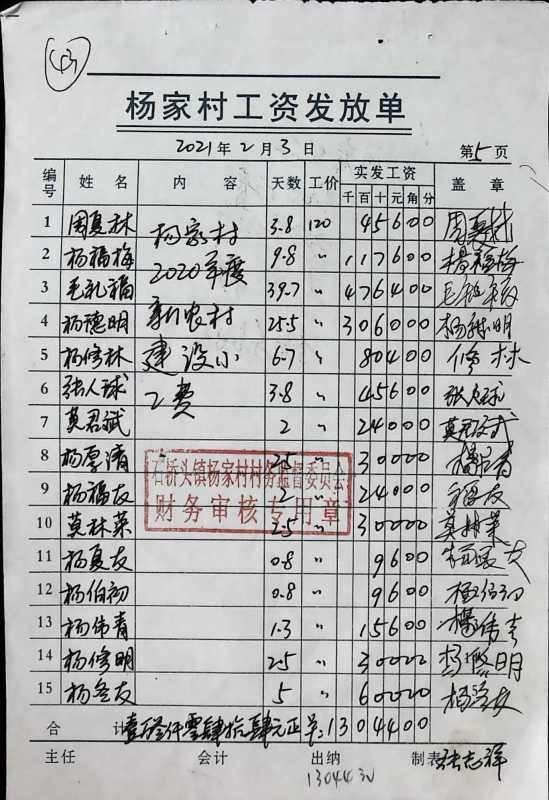 43
杨家村工资发放单
2021年2月3日 第5页
编号 姓名 内容 天数 工价 实发工资 盖章
千百十元角分
1 周夏林 杨家村 3.8 120 45600
2 杨福梅 2020年度 9.8 〃 117600 杨福梅
3 毛礼福 39.7 〃 476400
4 杨德明 新农村 25.5 〃 306000 杨德明
5 杨修林 建设小 6.7 〃 80400 修林
6 张人球 工费 3.8 〃 45600 张人球
7 莫君斌 2 〃 24000 莫君斌
8 杨厚清 2.5 〃 30000
9 杨福友 2 〃 24000 福友
10 莫林菜 2.5 〃 30000 莫林菜
石桥头镇杨家村村务监督委员会
财务审核专用章
11 杨夏友 0.8 〃 9600
12 杨伯初 0.8 〃 9600 杨伯初
13 杨伟青 1.3 〃 15600 杨伟青
14 杨修明 2.5 〃 30000 杨修明
15 杨冬友 5 〃 60000
合计 零肆拾肆元正 1304400
主任 会计 出纳 制表 张志祥